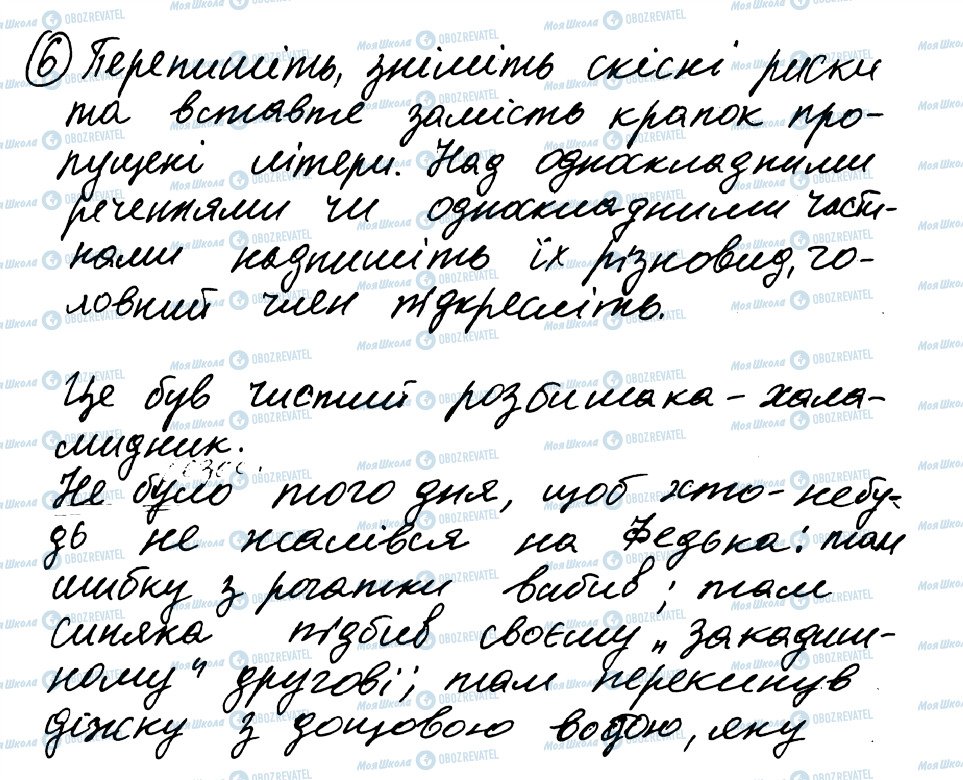 6 Перепишіть, зніміть скісні риски
та вставте замість крапок про-
пущені літери. Над односкладними
реченнями чи односкладними части-
нами надпишіть їх різновид, го-
ловний член підкресліть.
Це був чистий розбишака - хала-
мидник.
Не було того дня, щоб хто-небу-
дь не жалівся на Федька: там
шибку з рогатки вибив; там
синяка підбив своєму "закадиш-
ному" другові; там перекинув
діжку з дощовою водою, яку